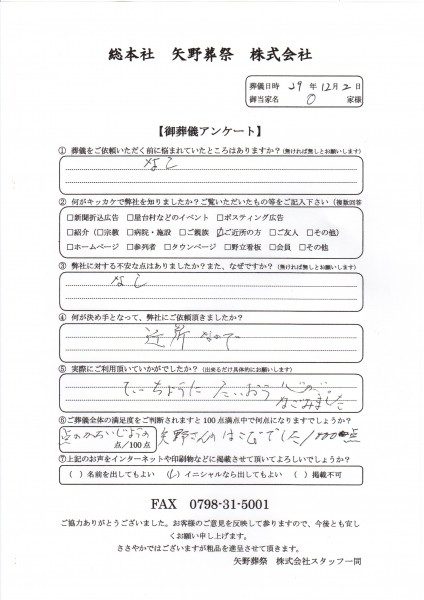 総本社 矢野葬祭 株式会社
葬儀日時 29年12月2日
御当家名 O 家様
【御葬儀アンケート】
① 葬儀をご依頼いただく前に悩まれていたところはありますか？(無ければ無しとお願いします)
なし
② 何がキッカケで弊社を知りましたか？ご覧いただいたもの等をご記入下さい（複数回答
□新聞折込広告 □屋台村などのイベント □ポスティング広告
□紹介（□宗教 □病院・施設 □ご親族 ☑ご近所の方 □ご友人 □その他）
□ホームページ □参列者 □タウンページ □野立看板 □会員 □その他
③ 弊社に対する不安な点はありましたか？また、なぜですか？(無ければ無しとお願いします)
なし
④ 何が決め手となって、弊社にご依頼頂きましたか？
近所なので
⑤ 実際にご利用頂いていかがでしたか？（出来るだけ具体的にお願いします）
ていちょうに たいおう
なごみました
⑥ご葬儀全体の満足度をご判断されますと100点満点中で何点になりますでしょうか？
点／100点
矢野さんのはこびでした／100点
⑦上記のお声をインターネットや印刷物などに掲載させて頂いてよろしいでしょうか？
（ ）名前を出してもよい （✓）イニシャルなら出してもよい （ ）掲載不可
FAX 0798-31-5001
ご協力ありがとうございました。お客様のご意見を反映して参りますので、今後とも宜し
くお願い申し上げます。
ささやかではございますが粗品を進呈させて頂きます。
矢野葬祭 株式会社スタッフ一同